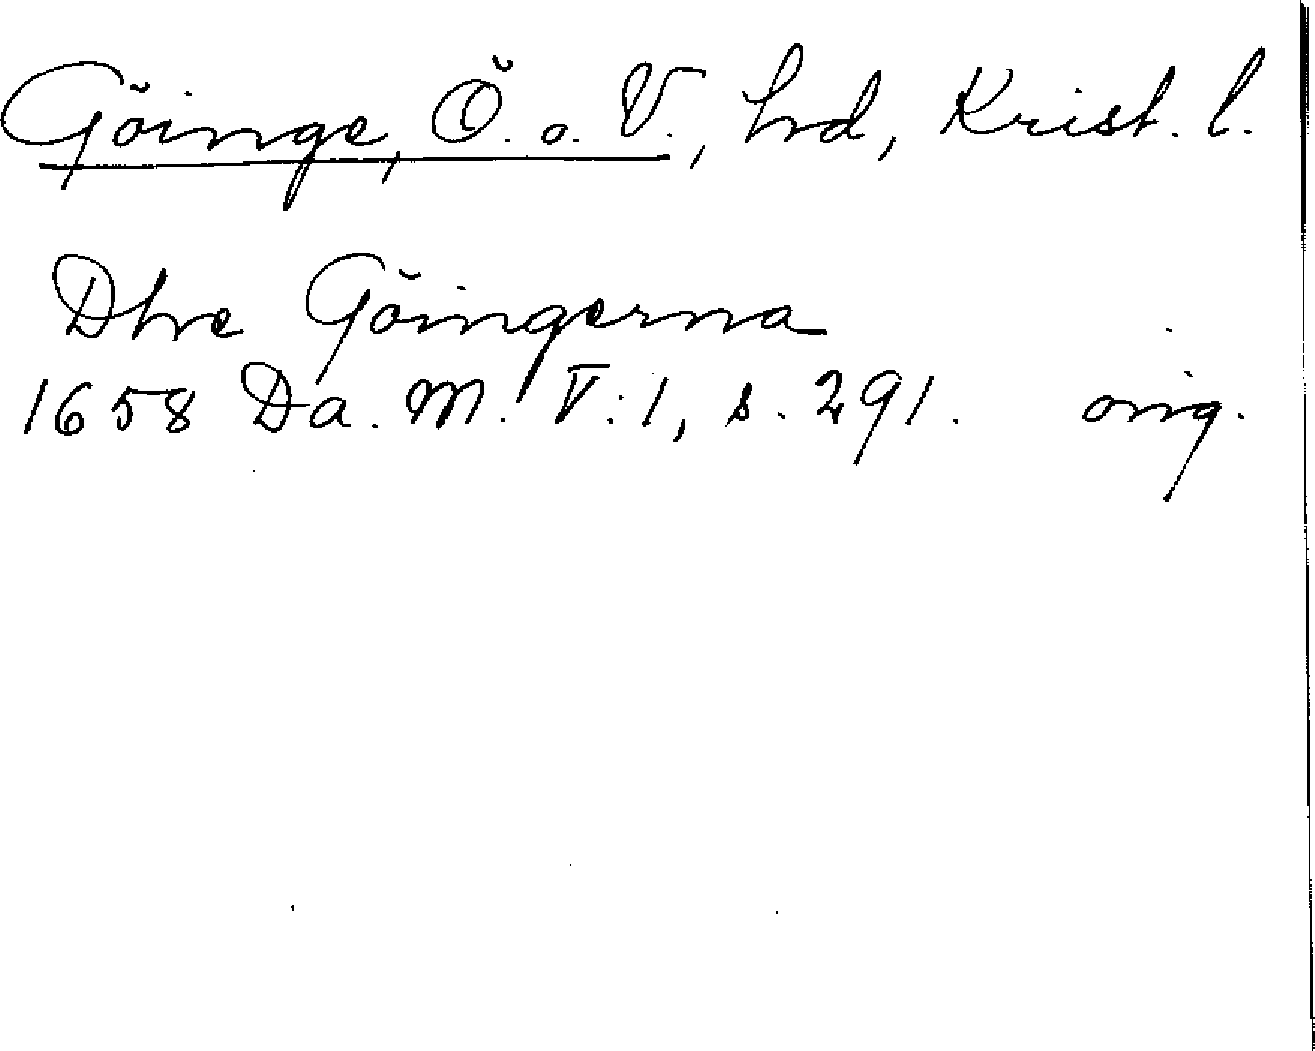 Göinge, Ö. o. V., hrd, Krist. l.
Dhe Göingerna
1658 Da. M. V:1, s. 291. orig.